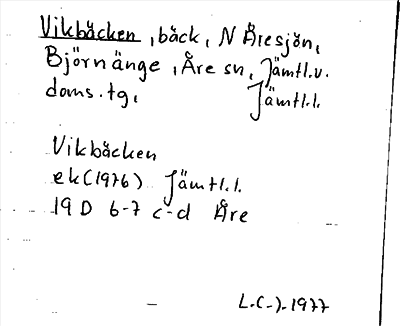 Vikbäcken, bäck, N Åresjön,
Björnänge, Åre sn, Jämtl.v.
doms.tg, Jämtl.l.
Vikbäcken
ek(1976) Jämtl.l.
19 D 6-7 c-d Åre
L.C-).1977